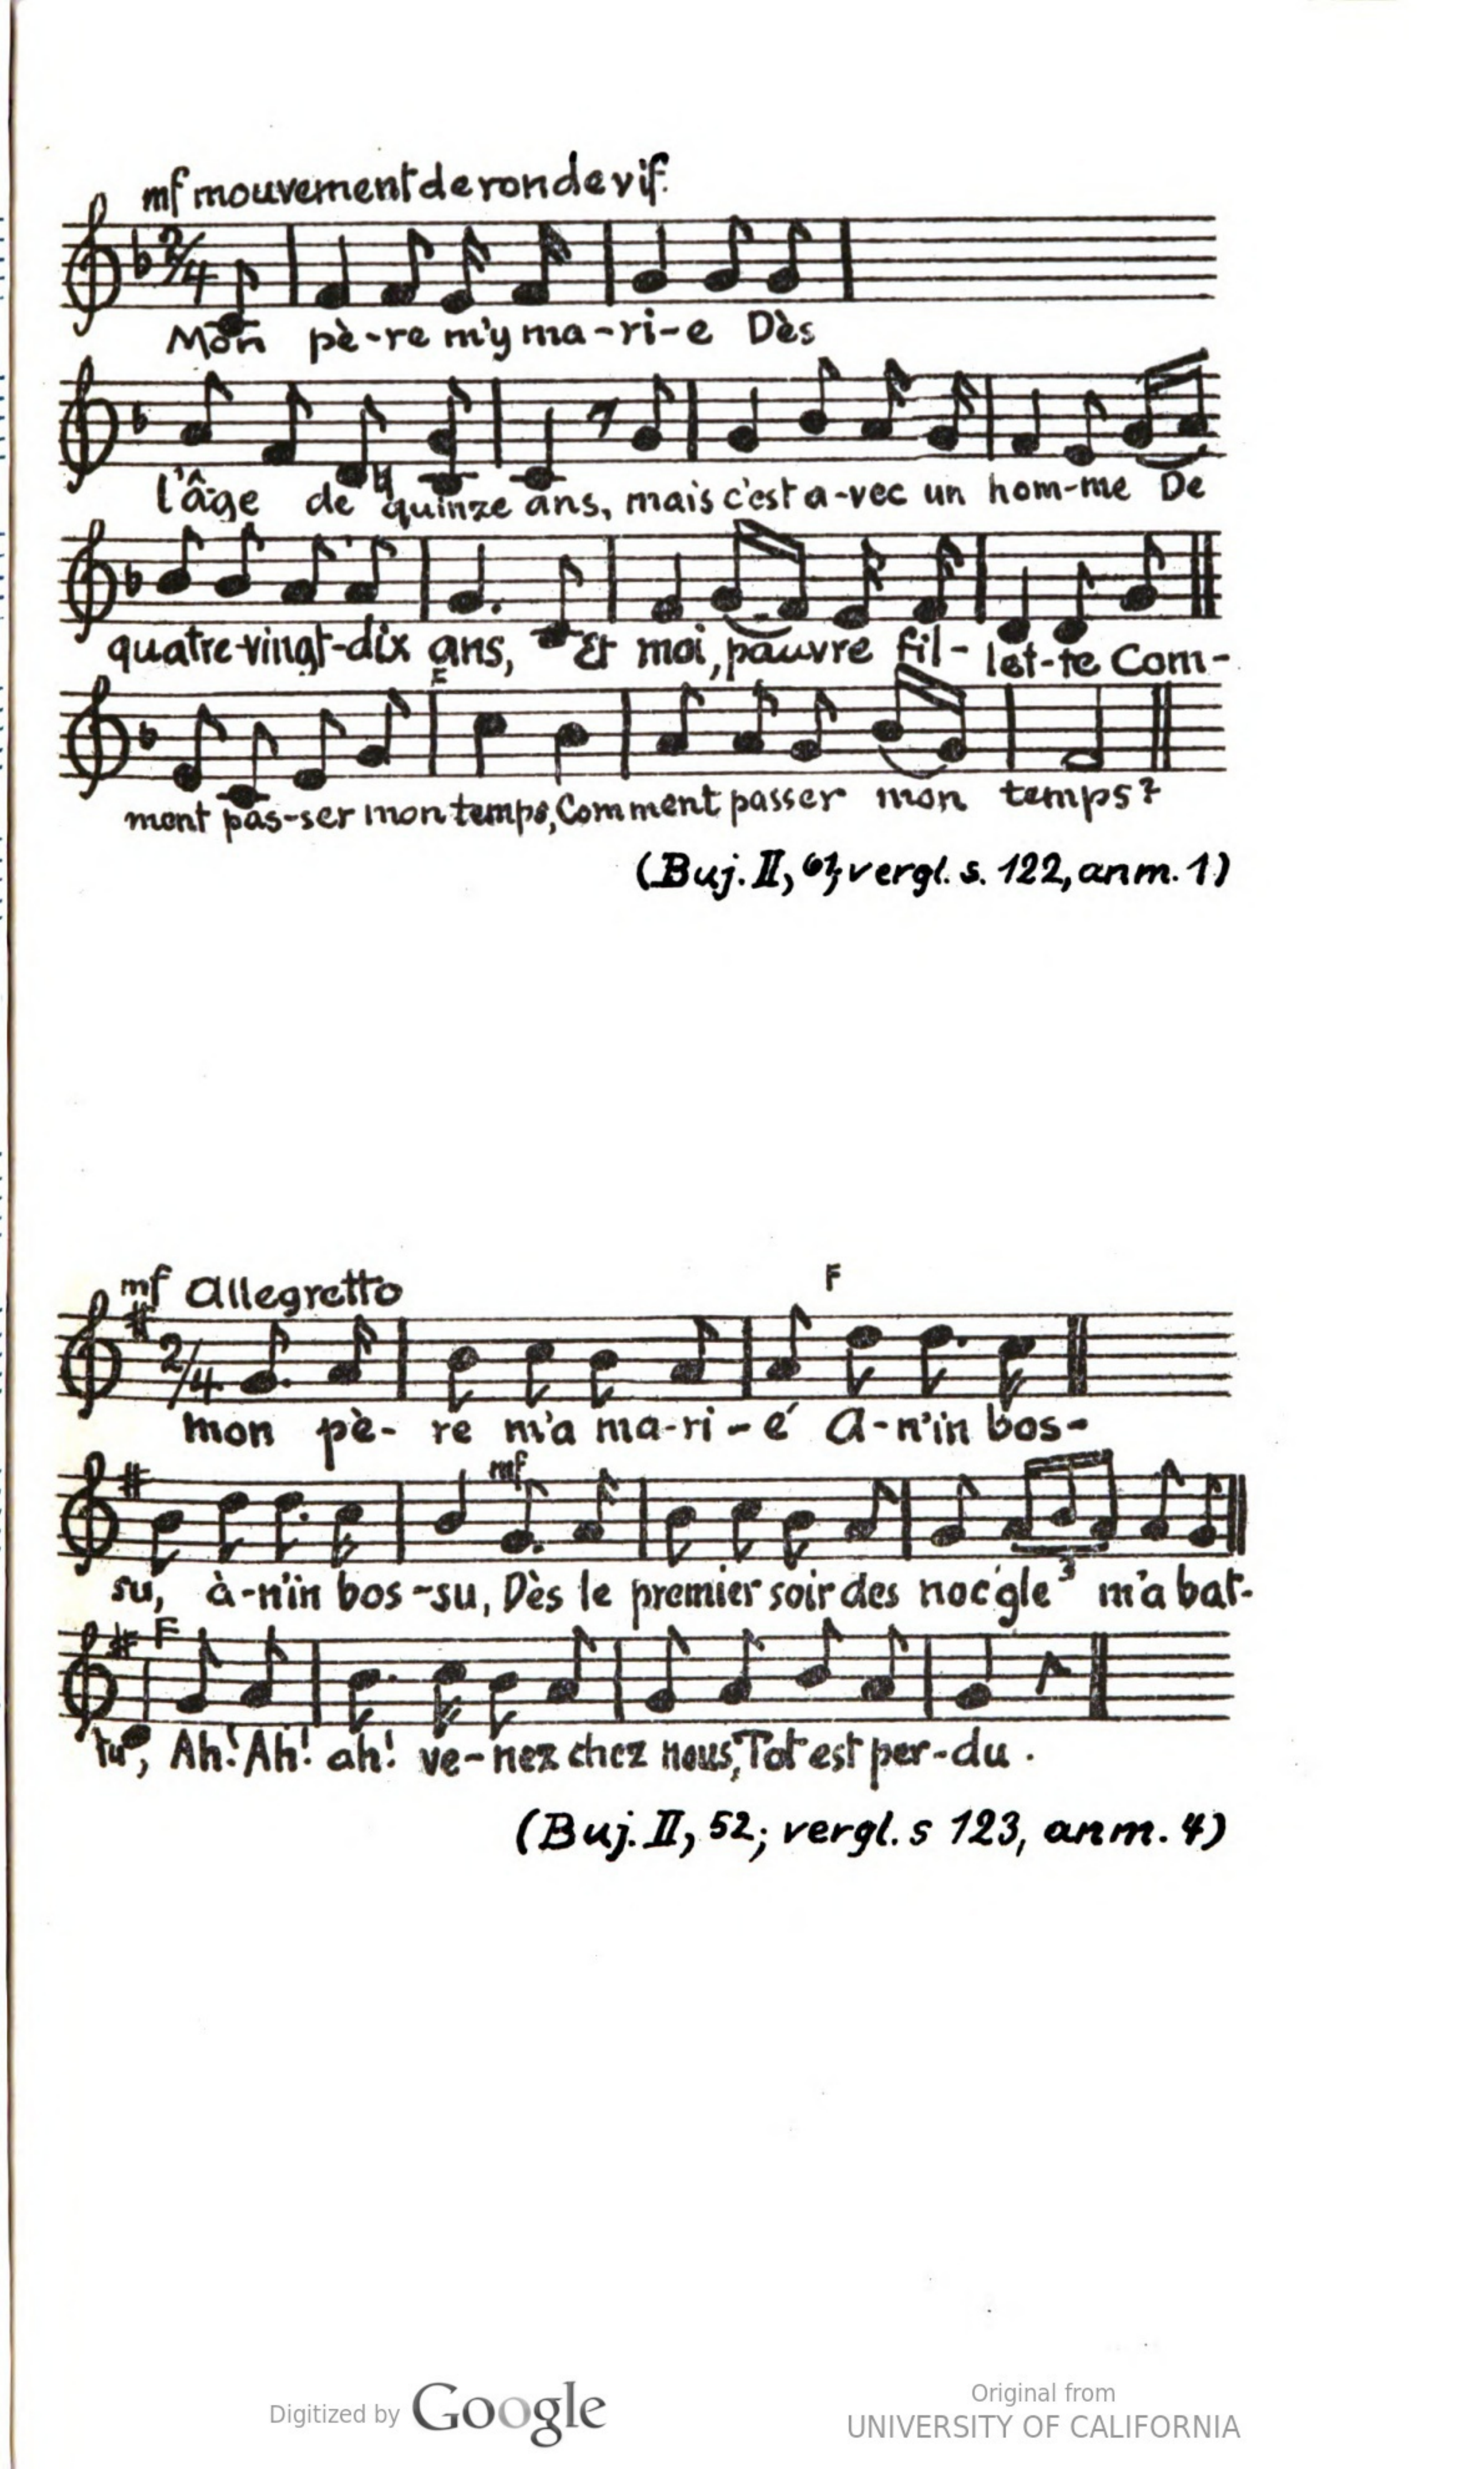 mf mouvement de ronde vif.
2/4
Mon pè-re m'y ma-ri-e Dès
l'âge de quinze ans, mais c'est a-vec un hom-me De
quatre-vingt-dix ans, Et moi, pauvre fil-let-te Com-
F
ment pas-ser mon temps, Comment passer mon temps?
(Buj. II, 61; vergl. s. 122, anm. 1)
mf Allegretto F
2/4
mon pè-re m'a ma-ri-é A-n'in bos-
mf
su, à-n'in bos-su, Dès le premier soir des noc' gle 3 m'a bat-
F
tu, Ah! Ah! ah! ve-nez chez nous, Tot est per-du.
(Buj. II, 52; vergl. s 123, anm. 4)
Digitized by Google
Original from
UNIVERSITY OF CALIFORNIA